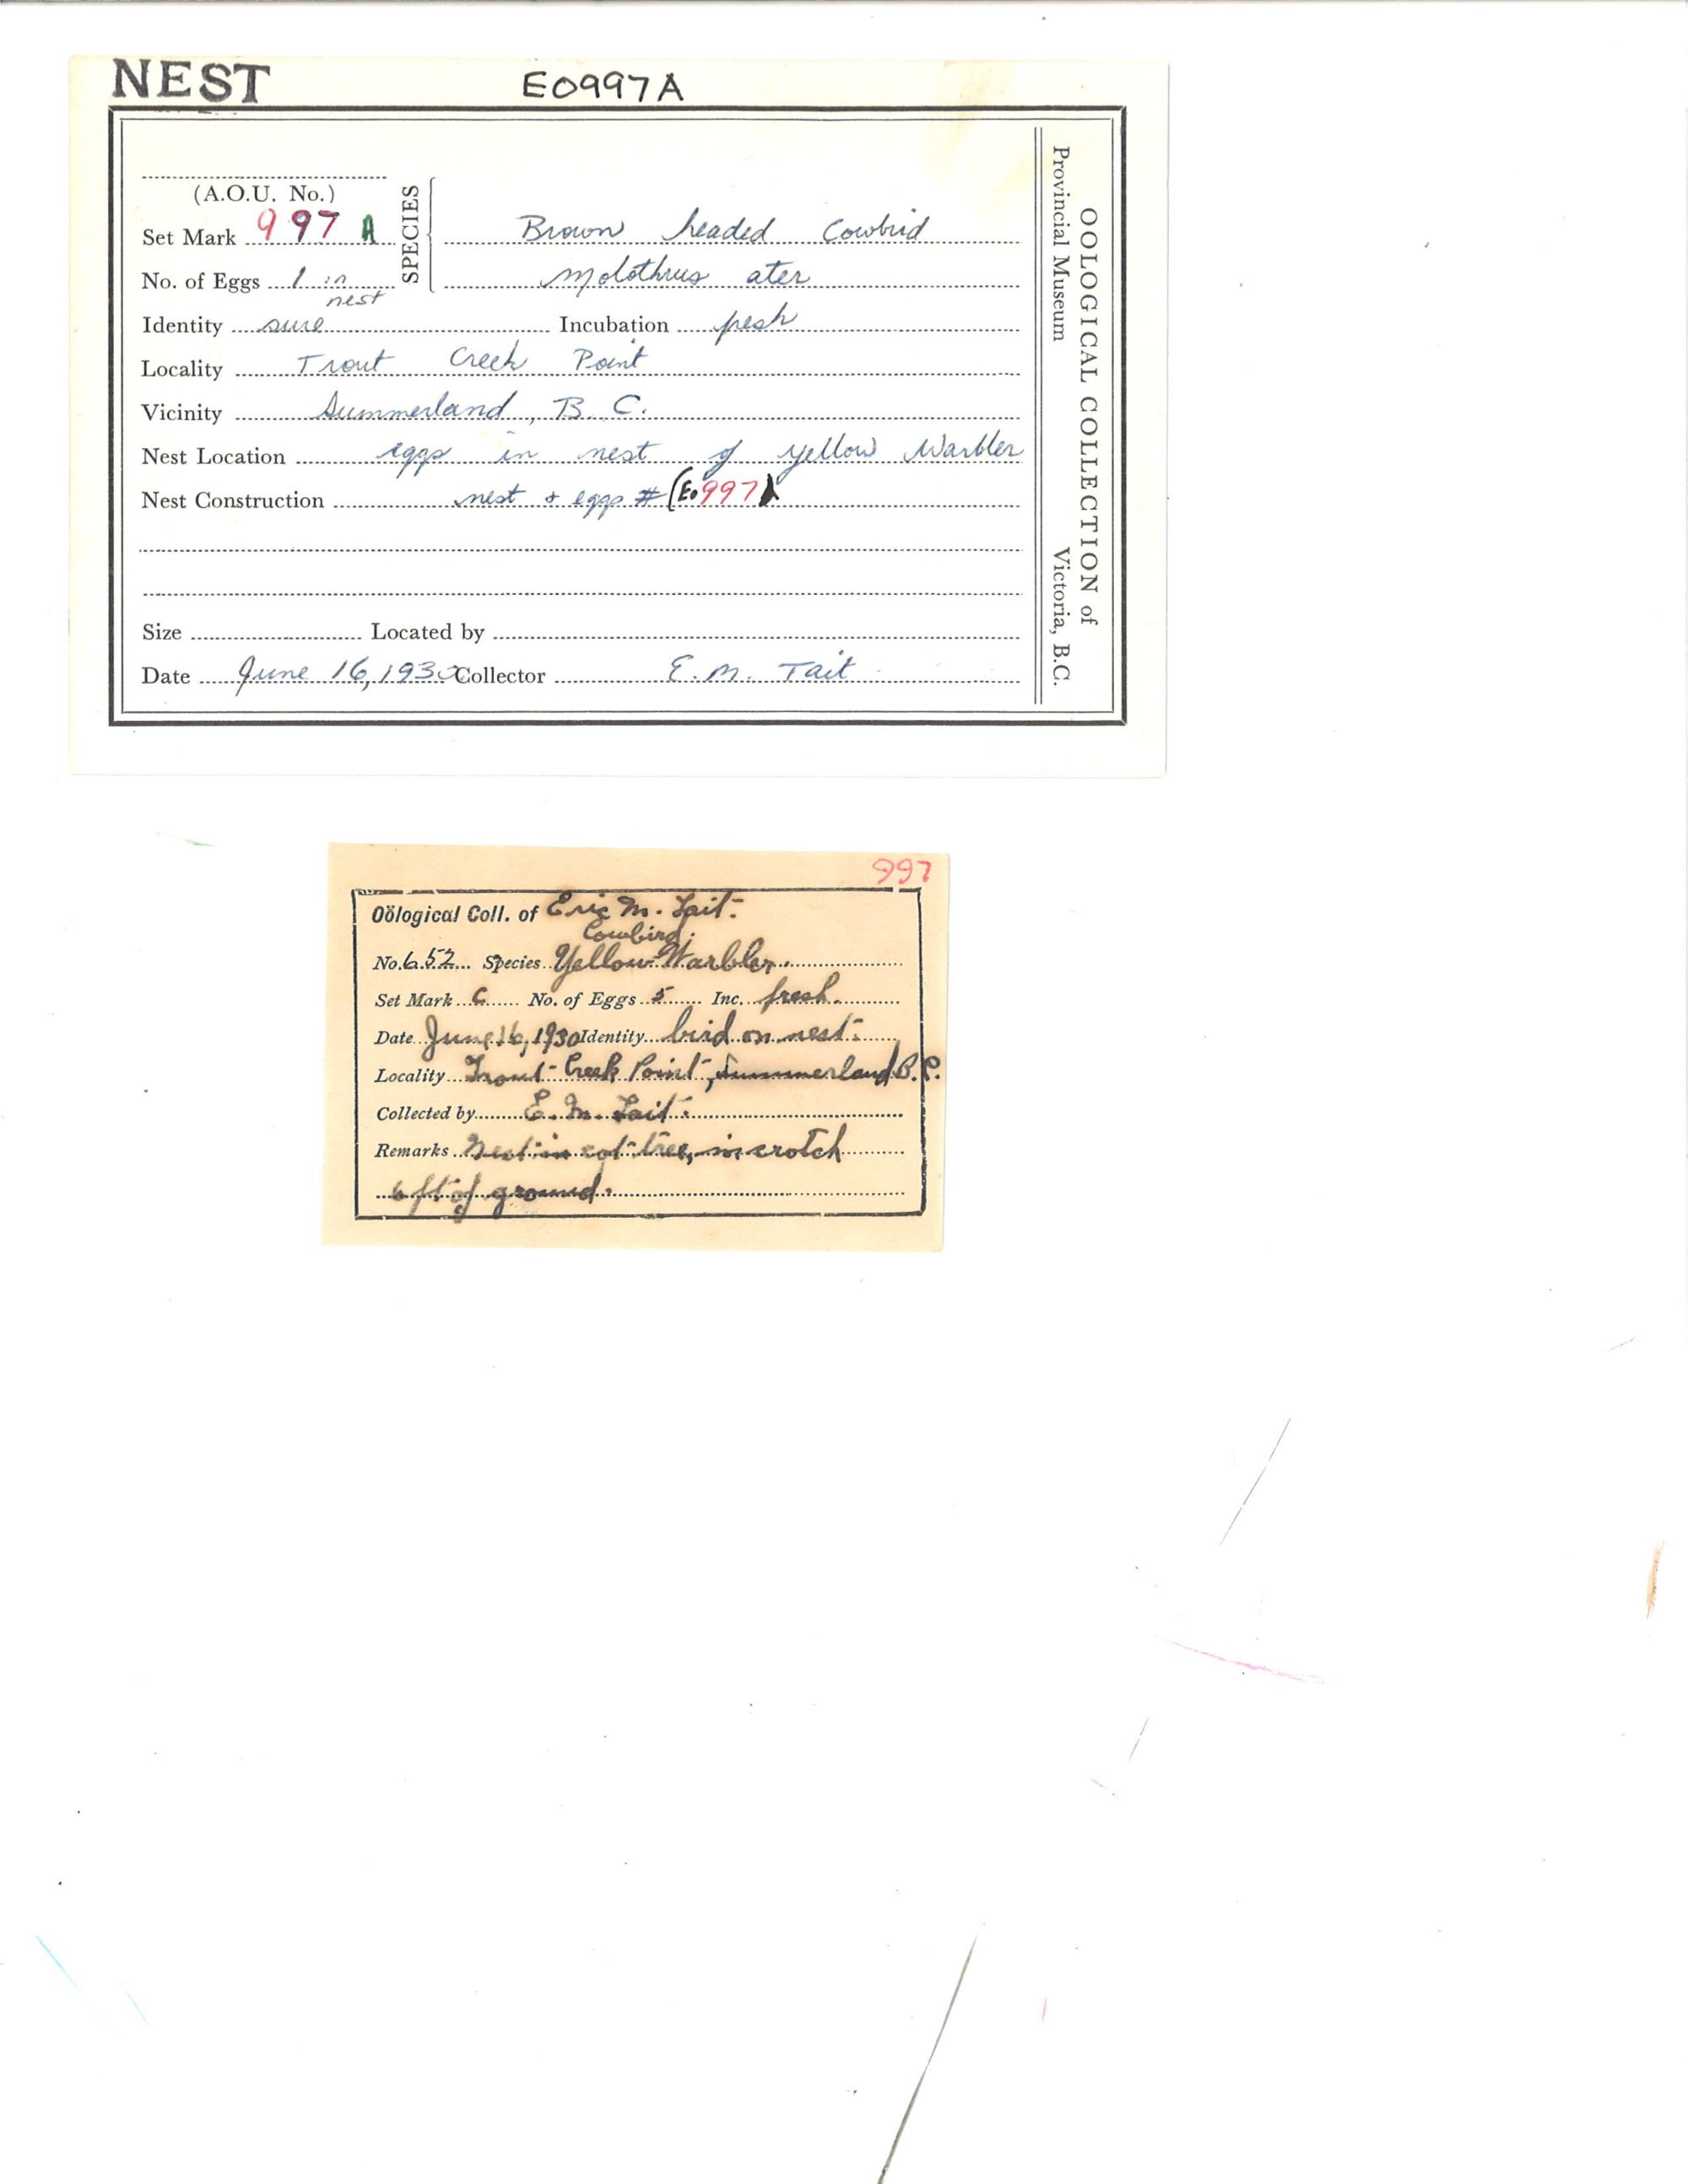 NEST E0997A
(A.O.U. No.)
Set Mark 997 A
SPECIES
Brown headed Cowbird
No. of Eggs 1 in nest
Molothrus ater
Identity sure Incubation fresh
Locality Trout Creek Point
Vicinity Summerland, B.C.
Nest Location eggs in nest of yellow Warbler
Nest Construction nest & eggs # (E0997A
Size Located by
Date June 16, 1930 Collector E. M. Tait
OOLOGICAL COLLECTION of
Provincial Museum Victoria, B.C.
997
Oölogical Coll. of Eric M. Tait.
Cowbird.
No. 652 Species Yellow Warbler.
Set Mark C No. of Eggs 5 Inc. fresh.
Date June 16, 1930 Identity bird on nest.
Locality Trout Creek Point, Summerland B.C.
Collected by E. M. Tait.
Remarks Nest in cot. tree, in crotch
6 ft of ground.